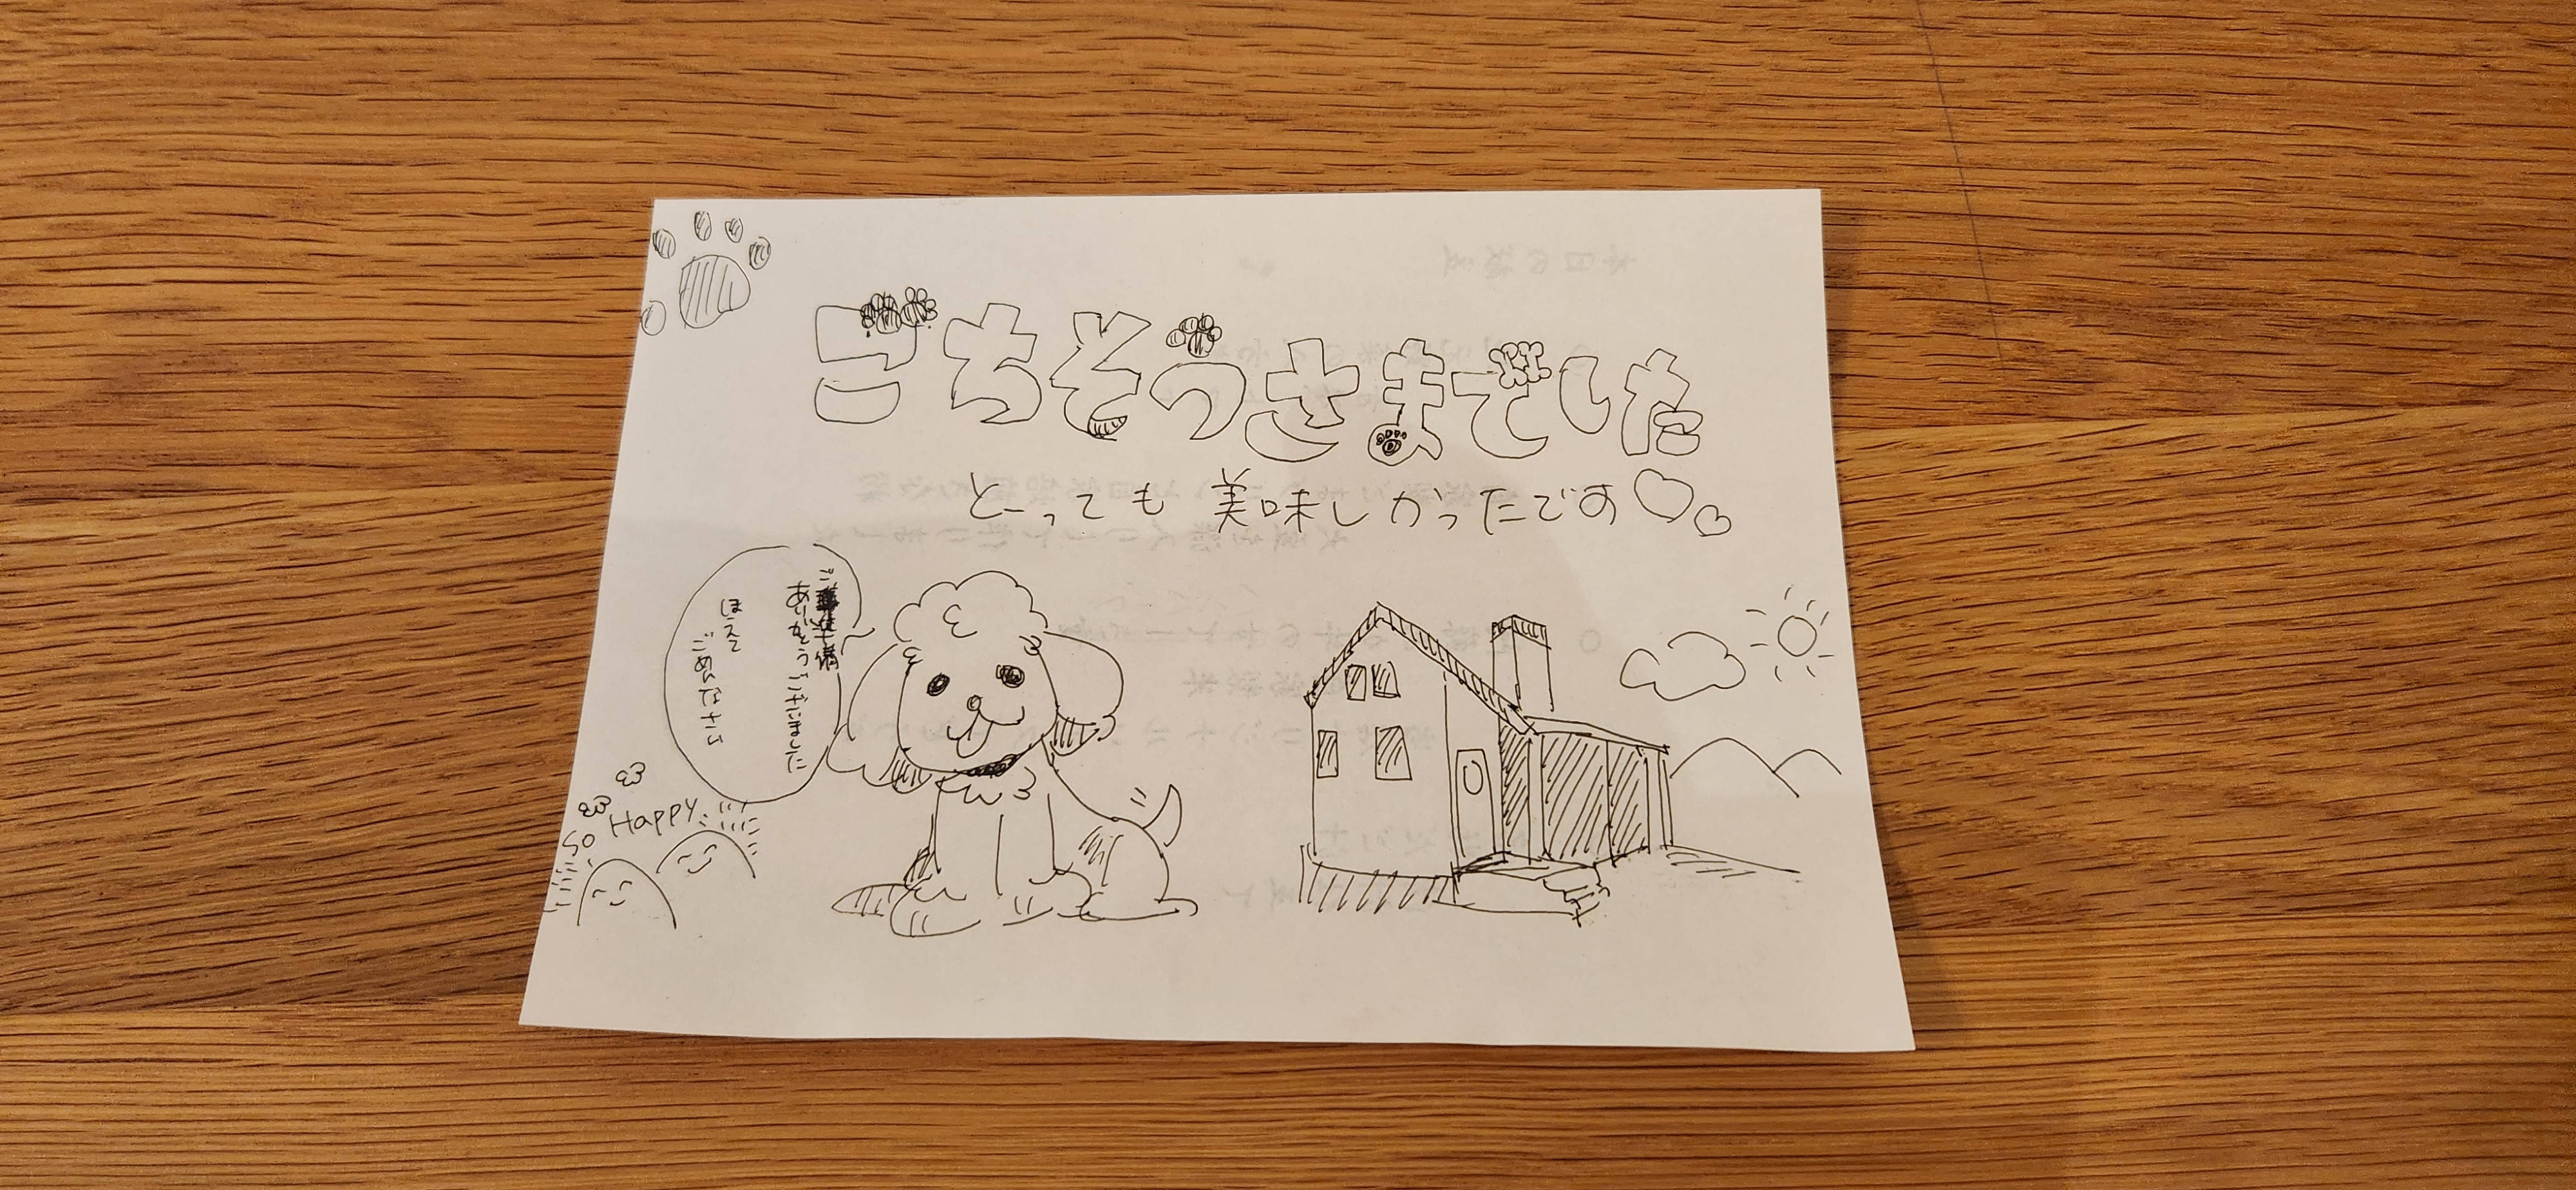 ごちそうさまでした
とーっても 美味しかったです
ご準備
ありがとうございました
ほえて
ごめんなさい
so Happy